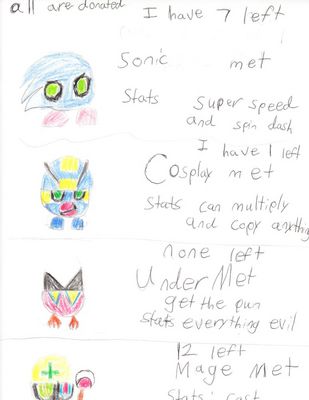 all are donated
I have 7 left
Sonic met
Stats super speed
and spin dash
I have 1 left
Cosplay met
Stats can multiply
and copy anything
none left
Under Met
get the pun
Stats everything evil
12 left
Mage Met
Stats: cast